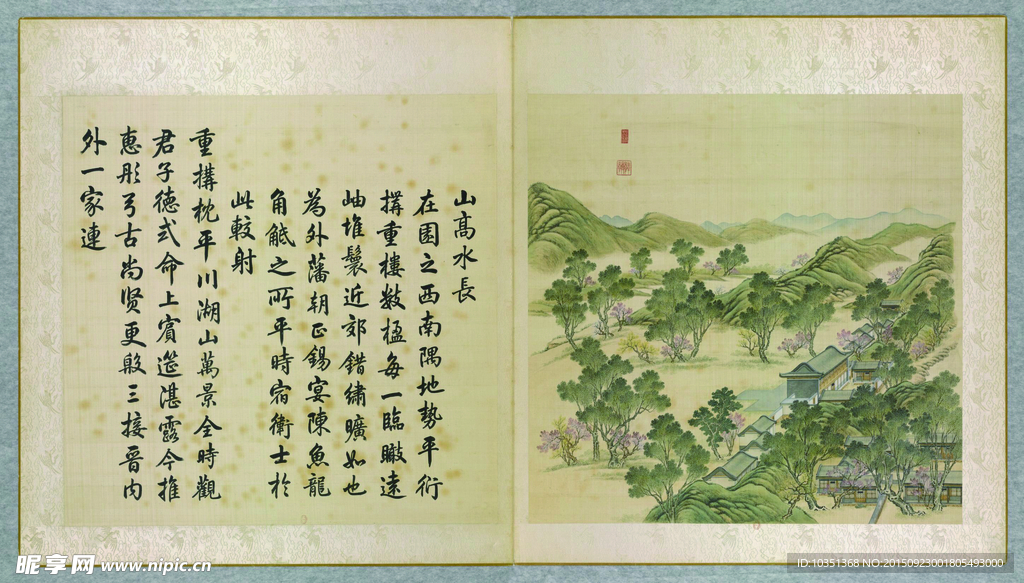 山髙水長
在園之西南隅地勢平衍
搆重樓數楹每一臨瞰遠
岫堆鬟近郊錯繡曠如也
為外藩朝正錫宴陳魚龍
角觝之所平時宿衛士於
此較射
重搆枕平川湖山萬景全時觀
君子徳式命上賓筵湛露今推
惠彤弓古尚賢更殷三接晉内
外一家連
昵享网 www.nipic.cn
ID:10351368 NO:20150923001805493000